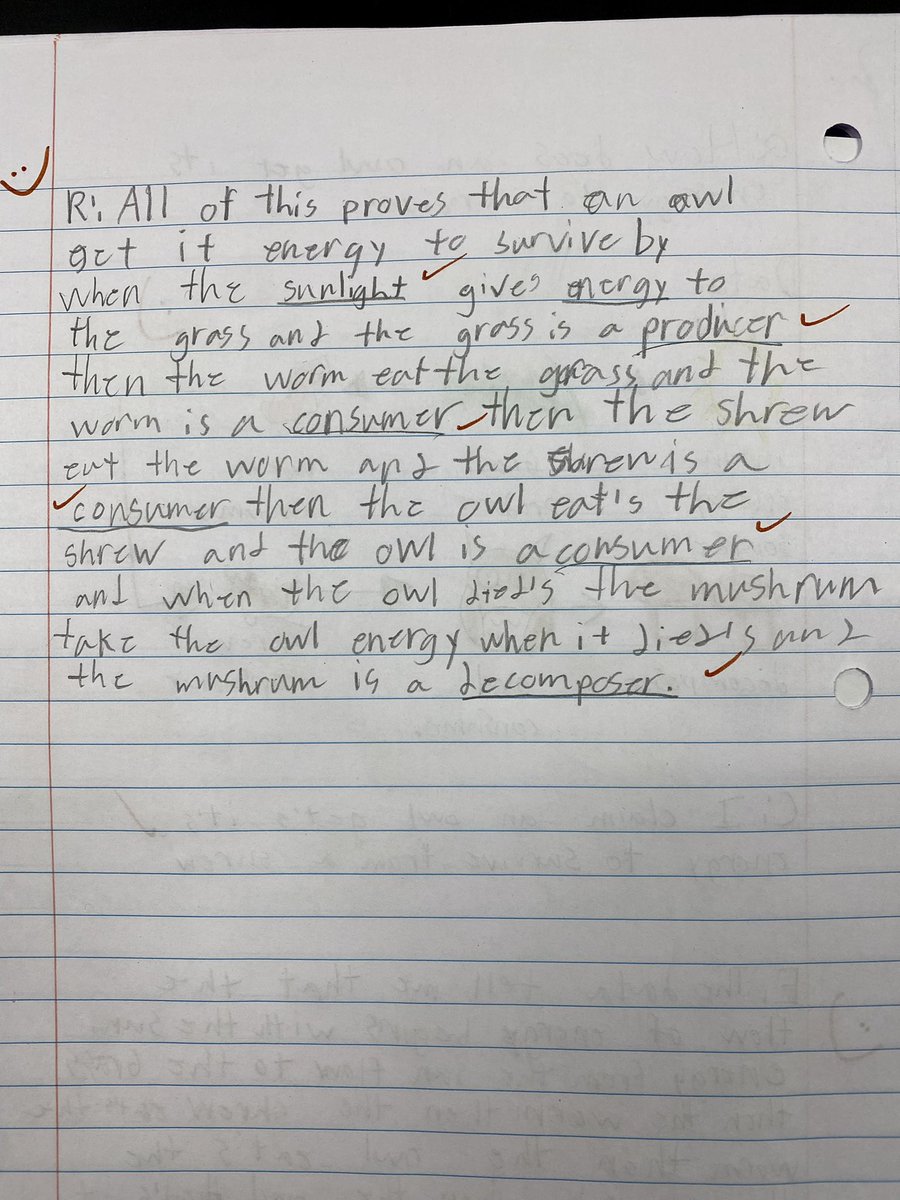 R: All of this proves that an owl
get it energy to survive by
when the sunlight gives energy to
the grass and the grass is a producer
then the worm eat the grass and the
worm is a consumer then the shrew
eat the worm and the shrew is a
consumer then the owl eat's the
shrew and the owl is a consumer
and when the owl died's the mushrum
take the owl energy when it died's and
the mushrum is a decomposer.